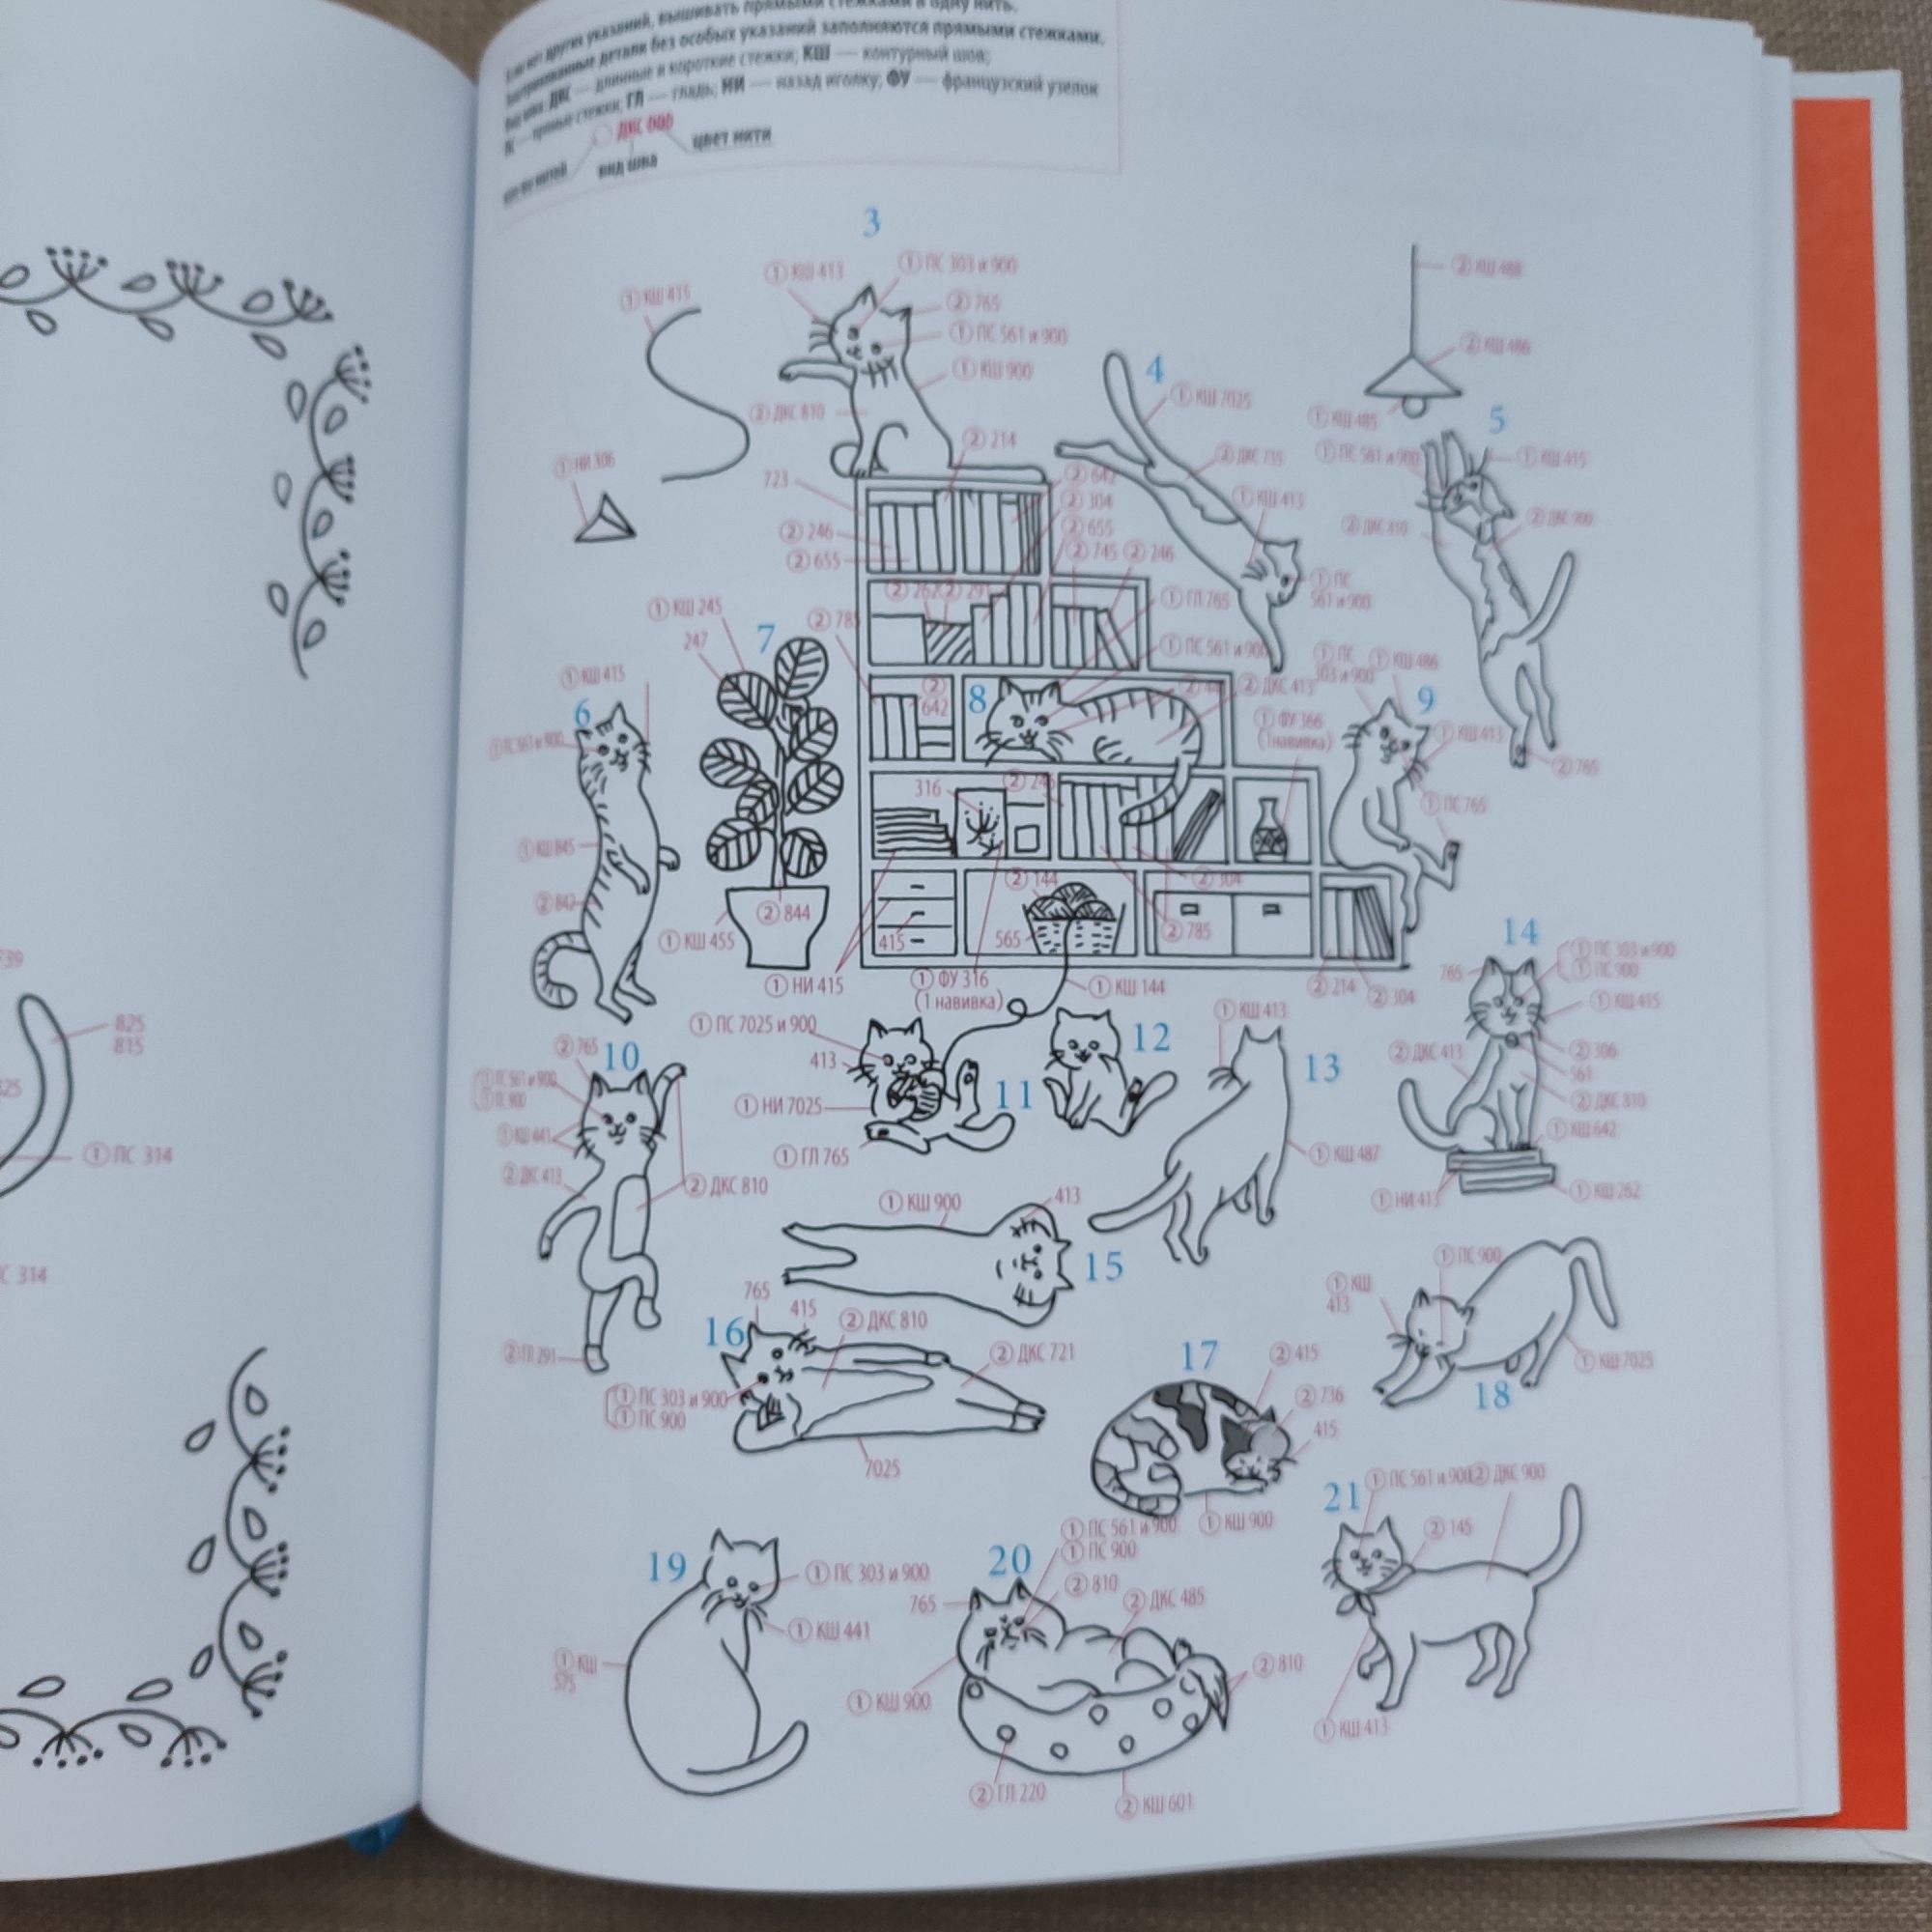 других указаний, вышивать прямыми стежками в одну нить.
детали без особых указаний заполняются прямыми стежками.
ДКС — длинные и короткие стежки; КШ — контурный шов;
стежки; ГЛ — гладь; НИ — назад иголку; ФУ — французский узелок
ДКС 000
цвет нити
вид шва
3
① КШ 413
① ПС 303 и 900
② КШ 488
① КШ 415
② 765
① ПС 561 и 900
② КШ 486
4
① КШ 900
① КШ 7025
② ДКС 810
① КШ 485
5
② 214
① НИ 306
② ДКС 735
① ПС 561 и 900
① КШ 415
723
② 642
② 304
① КШ 413
② 246
② 655
② ДКС 410
② ДКС 900
② 655
② 745
② 246
② 262
② 291
① ПС
561 и 900
① ГЛ 765
① КШ 245
② 785
247
7
① ПС 561 и 900
① ПС
303 и 900
① КШ 486
① КШ 415
② 642
8
② ДКС 413
9
6
① ФУ 366
(1 навивка)
① КШ 413
① ПС 561 и 900
② 765
316
② 246
① ПС 765
① КШ 845
② 144
② 304
② 842
② 844
① КШ 455
415
565
② 785
14
① ПС 303 и 900
① ПС 900
765
① НИ 415
① ФУ 316
(1 навивка)
① КШ 144
② 214
② 304
739
① КШ 415
① ПС 7025 и 900
12
① КШ 413
825
815
② 765
10
413
13
② ДКС 413
② 306
561
① ПС 561 и 900
① ПС 900
11
① НИ 7025
② ДКС 810
① КШ 441
① КШ 642
① ПС 314
① ГЛ 765
① КШ 487
② ДКС 413
② ДКС 810
① НИ 413
① КШ 262
① КШ 900
413
15
С 314
① ПС 900
① КШ
413
765
415
16
② ДКС 810
② ГЛ 291
② ДКС 721
17
② 415
① КШ 7025
① ПС 303 и 900
① ПС 900
② 736
18
415
7025
① ПС 561 и 900
② ДКС 900
21
① ПС 561 и 900
① КШ 900
② 145
① ПС 900
19
20
① ПС 303 и 900
② 810
765
② ДКС 485
① КШ 441
① КШ
575
② 810
① КШ 900
① КШ 413
② ГЛ 220
② КШ 601